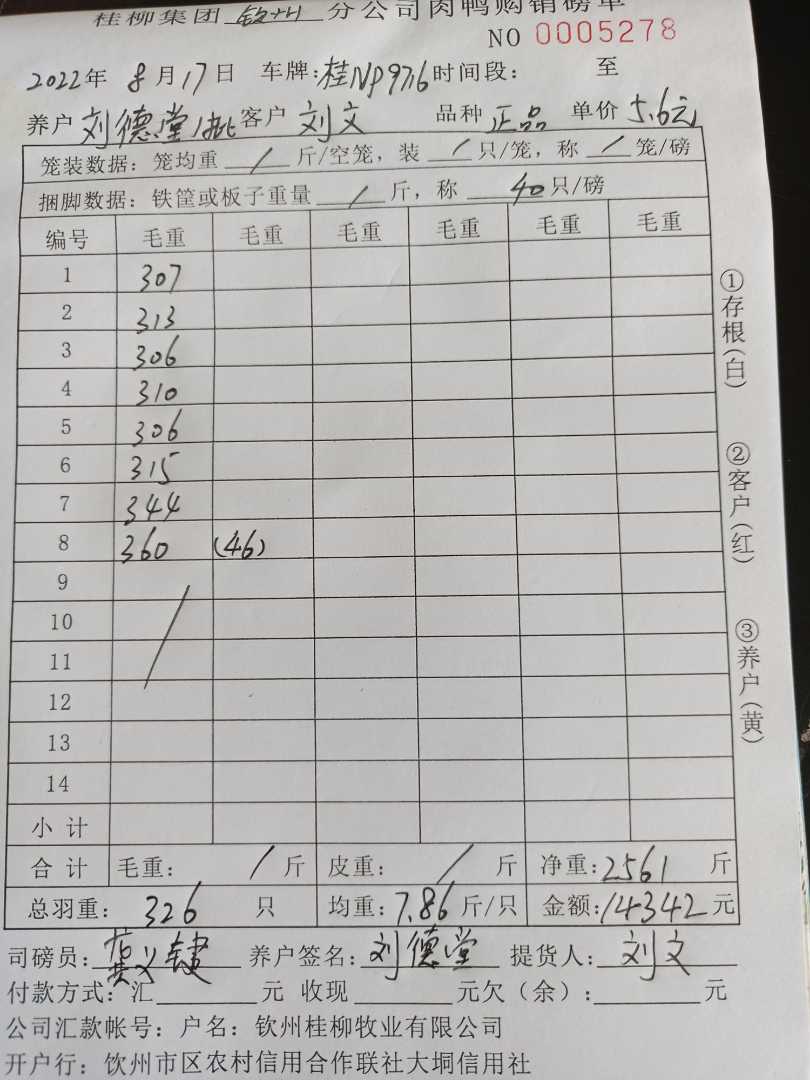 桂柳集团 钦州 分公司肉鸭购销磅单
NO 0005278
2022年 8月17日 车牌:桂NP9716 时间段: 至
养户 刘德堂1批 客户 刘文 品种 正品 单价 5.6元
笼装数据: 笼均重 / 斤/空笼, 装 / 只/笼, 称 / 笼/磅
捆脚数据: 铁筐或板子重量 / 斤, 称 40只/磅
编号 毛重 毛重 毛重 毛重 毛重 毛重
1 307
2 313
3 306
4 310
5 306
6 315
7 344
8 360 (46)
9
10
11
12
13
14
小计
合计 毛重: / 斤 皮重: / 斤 净重:2561 斤
总羽重: 326 只 均重:7.86斤/只 金额:14342元
司磅员: 养户签名: 刘德堂 提货人: 刘文
付款方式: 汇 元 收现 元欠(余): 元
公司汇款帐号: 户名: 钦州桂柳牧业有限公司
开户行: 钦州市区农村信用合作联社大垌信用社
①存根(白)
②客户(红)
③养户(黄)